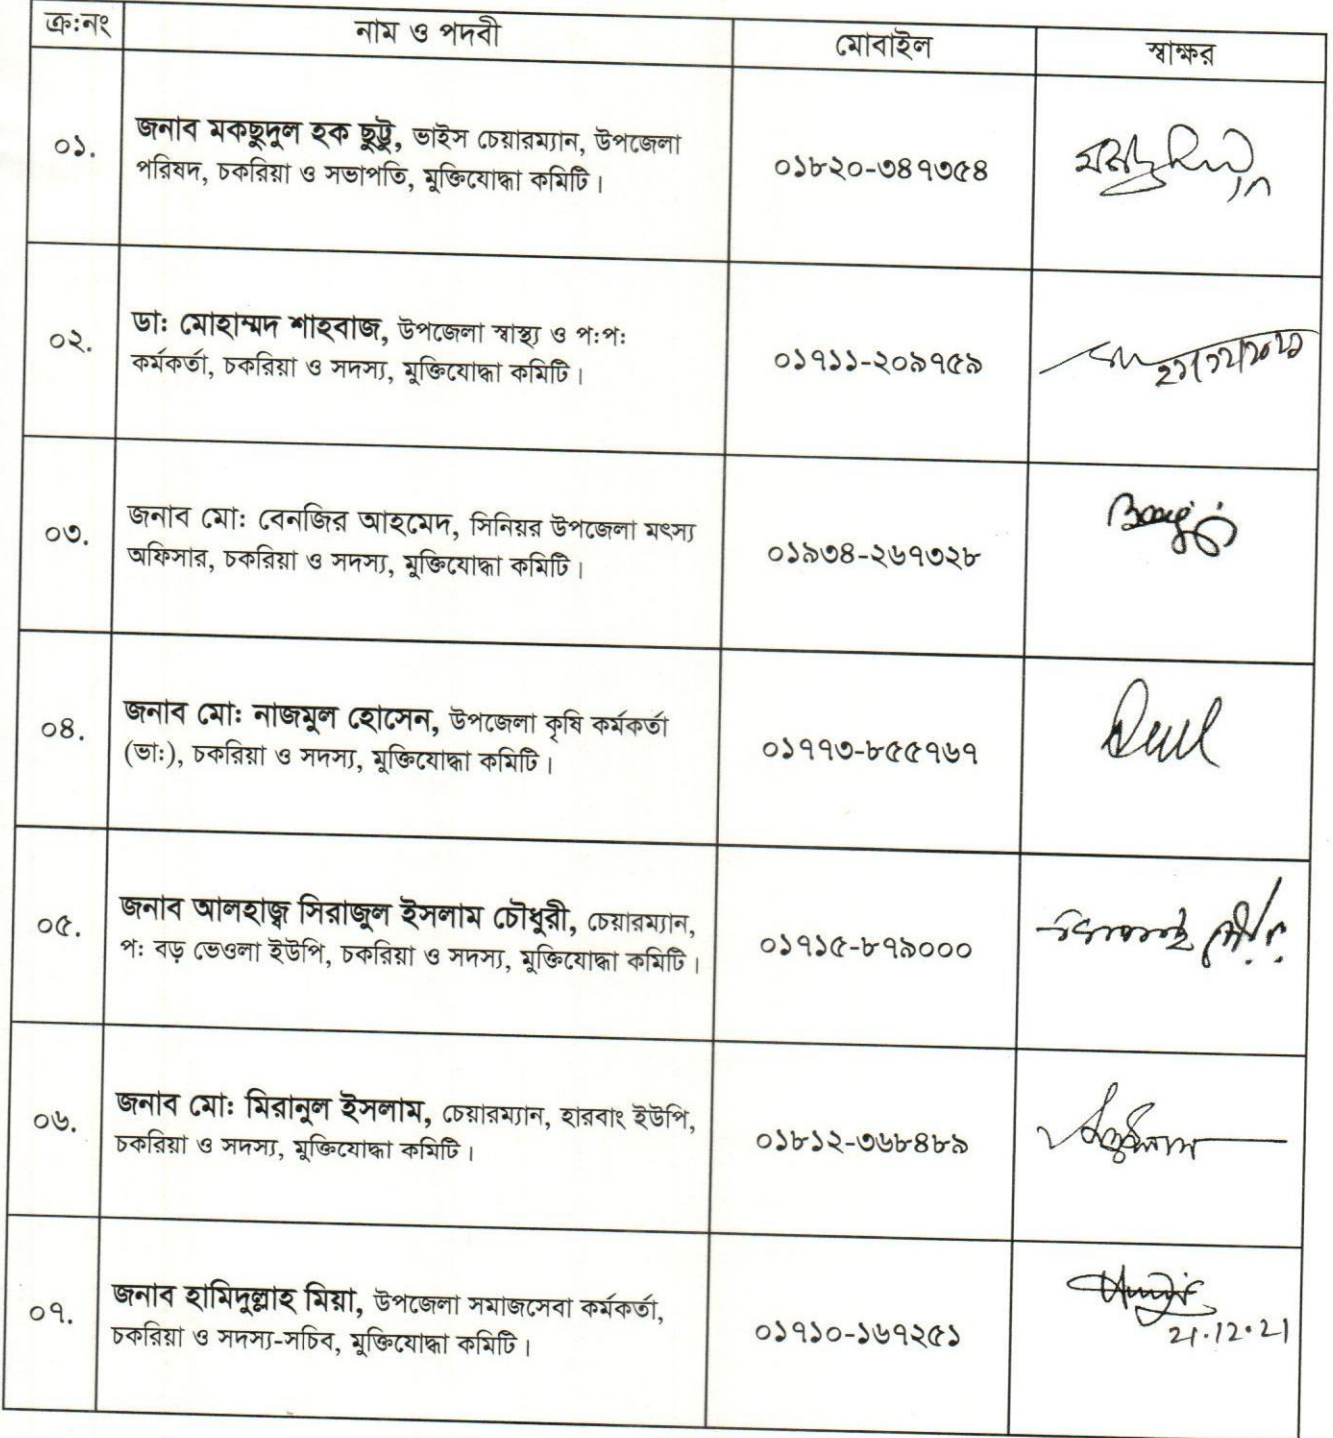 ক্র:নং নাম ও পদবী মোবাইল স্বাক্ষর
০১. জনাব মকছুদুল হক ছুট্টু, ভাইস চেয়ারম্যান, উপজেলা
পরিষদ, চকরিয়া ও সভাপতি, মুক্তিযোদ্ধা কমিটি। ০১৮২০-৩৪৭৩৫৪
০২. ডা: মোহাম্মদ শাহবাজ, উপজেলা স্বাস্থ্য ও প:প:
কর্মকর্তা, চকরিয়া ও সদস্য, মুক্তিযোদ্ধা কমিটি। ০১৭১১-২০৯৭৫৯
০৩. জনাব মো: বেনজির আহমেদ, সিনিয়র উপজেলা মৎস্য
অফিসার, চকরিয়া ও সদস্য, মুক্তিযোদ্ধা কমিটি। ০১৯৩৪-২৬৭৩২৮
০৪. জনাব মো: নাজমুল হোসেন, উপজেলা কৃষি কর্মকর্তা
(ভা:), চকরিয়া ও সদস্য, মুক্তিযোদ্ধা কমিটি। ০১৭৭৩-৮৫৫৭৬৭
০৫. জনাব আলহাজ্ব সিরাজুল ইসলাম চৌধুরী, চেয়ারম্যান,
প: বড় ভেওলা ইউপি, চকরিয়া ও সদস্য, মুক্তিযোদ্ধা কমিটি। ০১৭১৫-৮৭৯০০০
০৬. জনাব মো: মিরানুল ইসলাম, চেয়ারম্যান, হারবাং ইউপি,
চকরিয়া ও সদস্য, মুক্তিযোদ্ধা কমিটি। ০১৮১২-৩৬৮৪৮৯
০৭. জনাব হামিদুল্লাহ মিয়া, উপজেলা সমাজসেবা কর্মকর্তা,
চকরিয়া ও সদস্য-সচিব, মুক্তিযোদ্ধা কমিটি। ০১৭১০-১৬৭২৫১
21.12.21